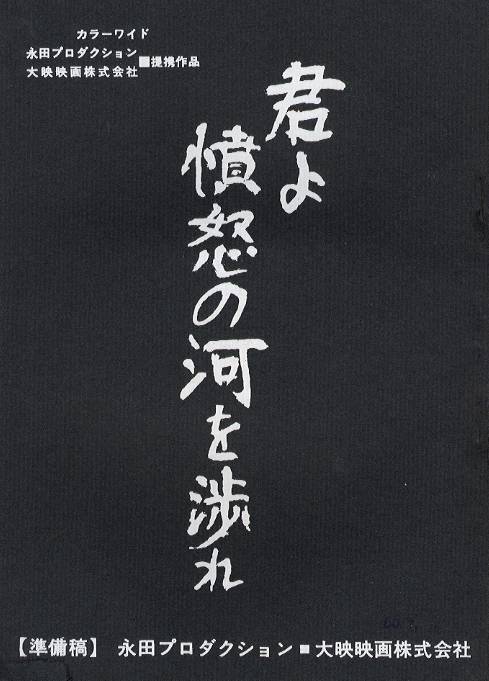 カラーワイド
永田プロダクション
大映映画株式会社
■提携作品
君よ
憤怒の河を渉れ
【準備稿】 永田プロダクション■大映映画株式会社